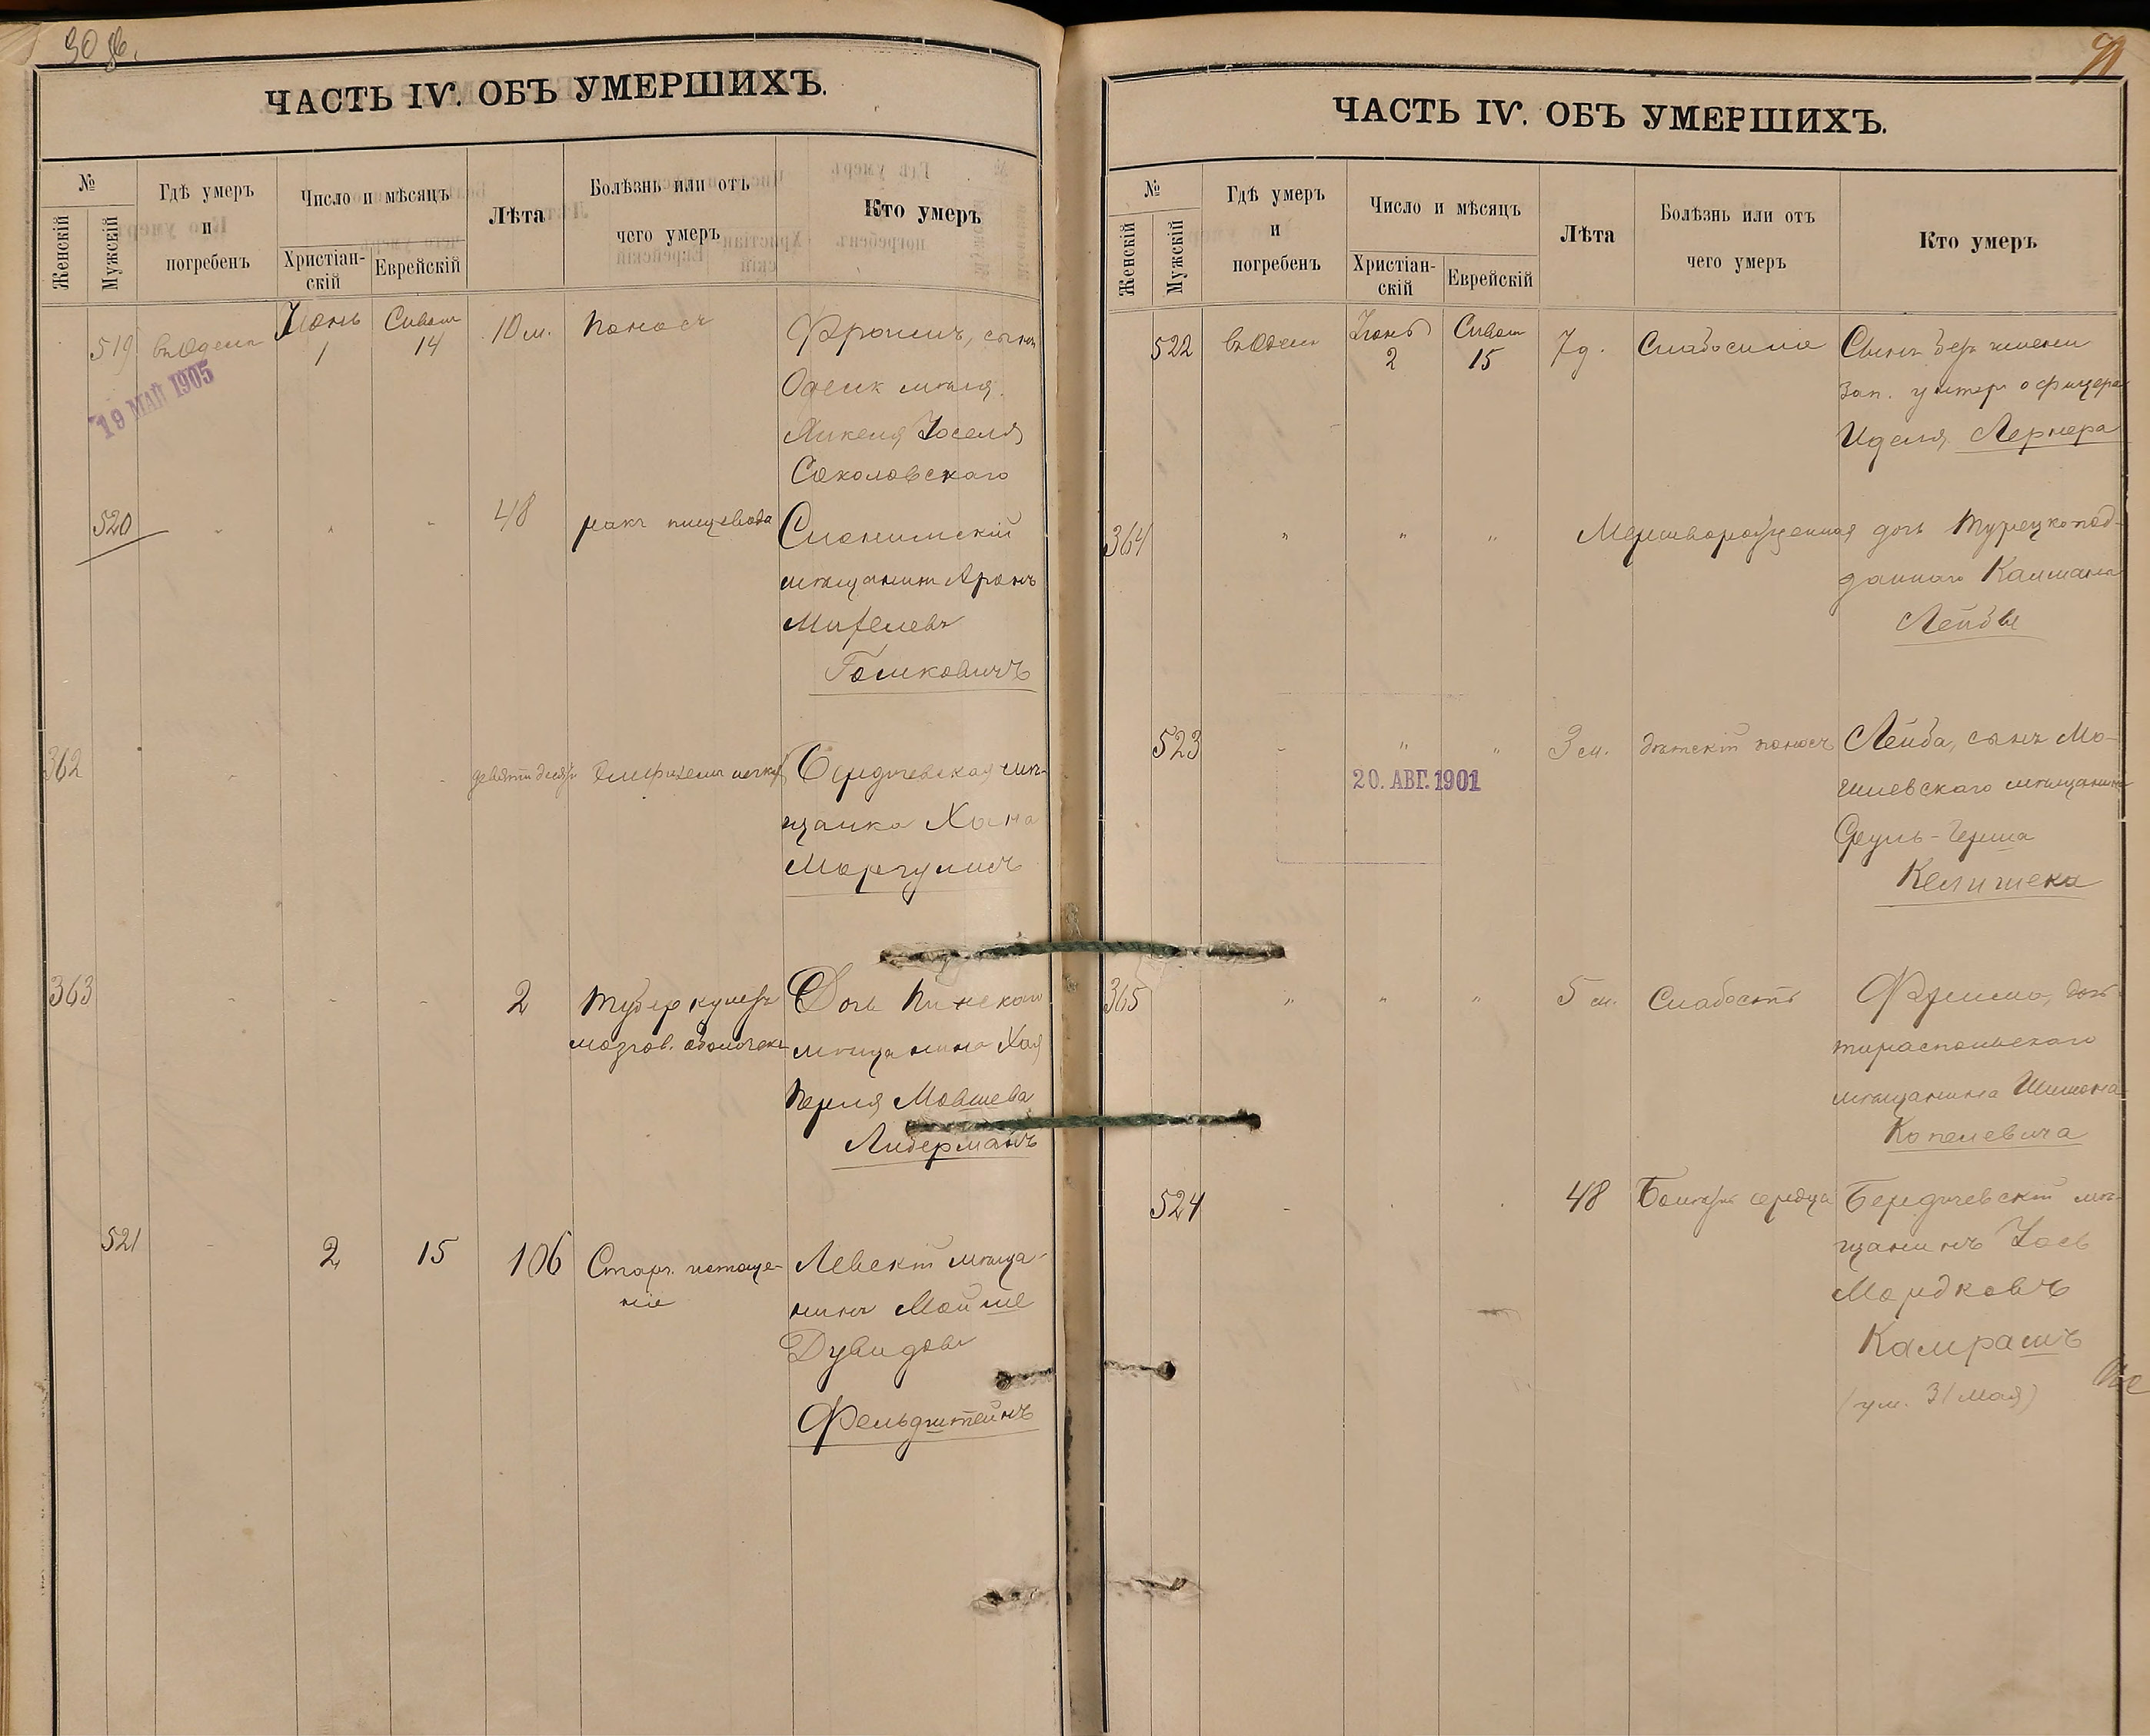 90 об.
ЧАСТЬ IV. ОБЪ УМЕРШИХЪ.
№
Женскій
Мужскій
Гдѣ умеръ
и
погребенъ
Число и мѣсяцъ
Христіан-
скій
Еврейскій
Лѣта
Болѣзнь или отъ
чего умеръ
Кто умеръ
519 въ Одессѣ Іюнь 1 Сиванъ 14 10 м. поносъ Фроимъ, сынъ
19 МАЙ 1905
Одесск мѣщ.
Янкеля Іоселя
Соколовскаго
520 48 ракъ пищевода Слонимскій
мѣщанинъ Аронъ
Гошковичъ
362 девяти дней Бердичевская мѣ-
щанка Хана
Маргулисъ
363 2 Туберкулезъ Дочь Пинскаго
мозгов. оболочекъ мѣщанина Хая
Перля Мовшева
Либерманъ
521 2 15 106 Старч. истоще- мѣща-
ніе нинъ Мойше
Дувидовъ
Фельдштейнъ
91
ЧАСТЬ IV. ОБЪ УМЕРШИХЪ.
№
Женскій
Мужскій
Гдѣ умеръ
и
погребенъ
Число и мѣсяцъ
Христіан-
скій
Еврейскій
Лѣта
Болѣзнь или отъ
чего умеръ
Кто умеръ
522 въ Одессѣ Іюнь 2 Сиванъ 15 7 д. Слабосиліе Сынъ безъ имени
зап. унтеръ офицера
Иделя Лернера
364 " " " Мертворожденная дочь Турецкопод-
даннаго Калмана
Лейбы
523 " " 3 м. дѣтскій поносъ Лейба, сынъ Мо-
20. АВГ. 1901
гилевскаго мѣщанина
Сруль-Герша
365 " " " 5 м. Слабость Фрима, дочь
тираспольскаго
мѣщанина Шимона
Копелевича
524 48 Болѣзнь сердца Бердичевскій мѣ-
щанинъ Іось
Мордковъ
Камрашъ
(ум. 31 мая)